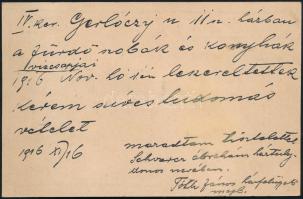 IV. ker. Gerlóczy u 11 u. házban
a fürdő szobák és konyhák
vizcsapjai
1916 Nov. hó 1én leszereltettek
kérem szíves tudomás
vételet
1916 XI/16
maradtam tisztelettel
Schwarcz Ábrahám háztulaj
donos nevében.
Tóth János házfelügyelő
megb.